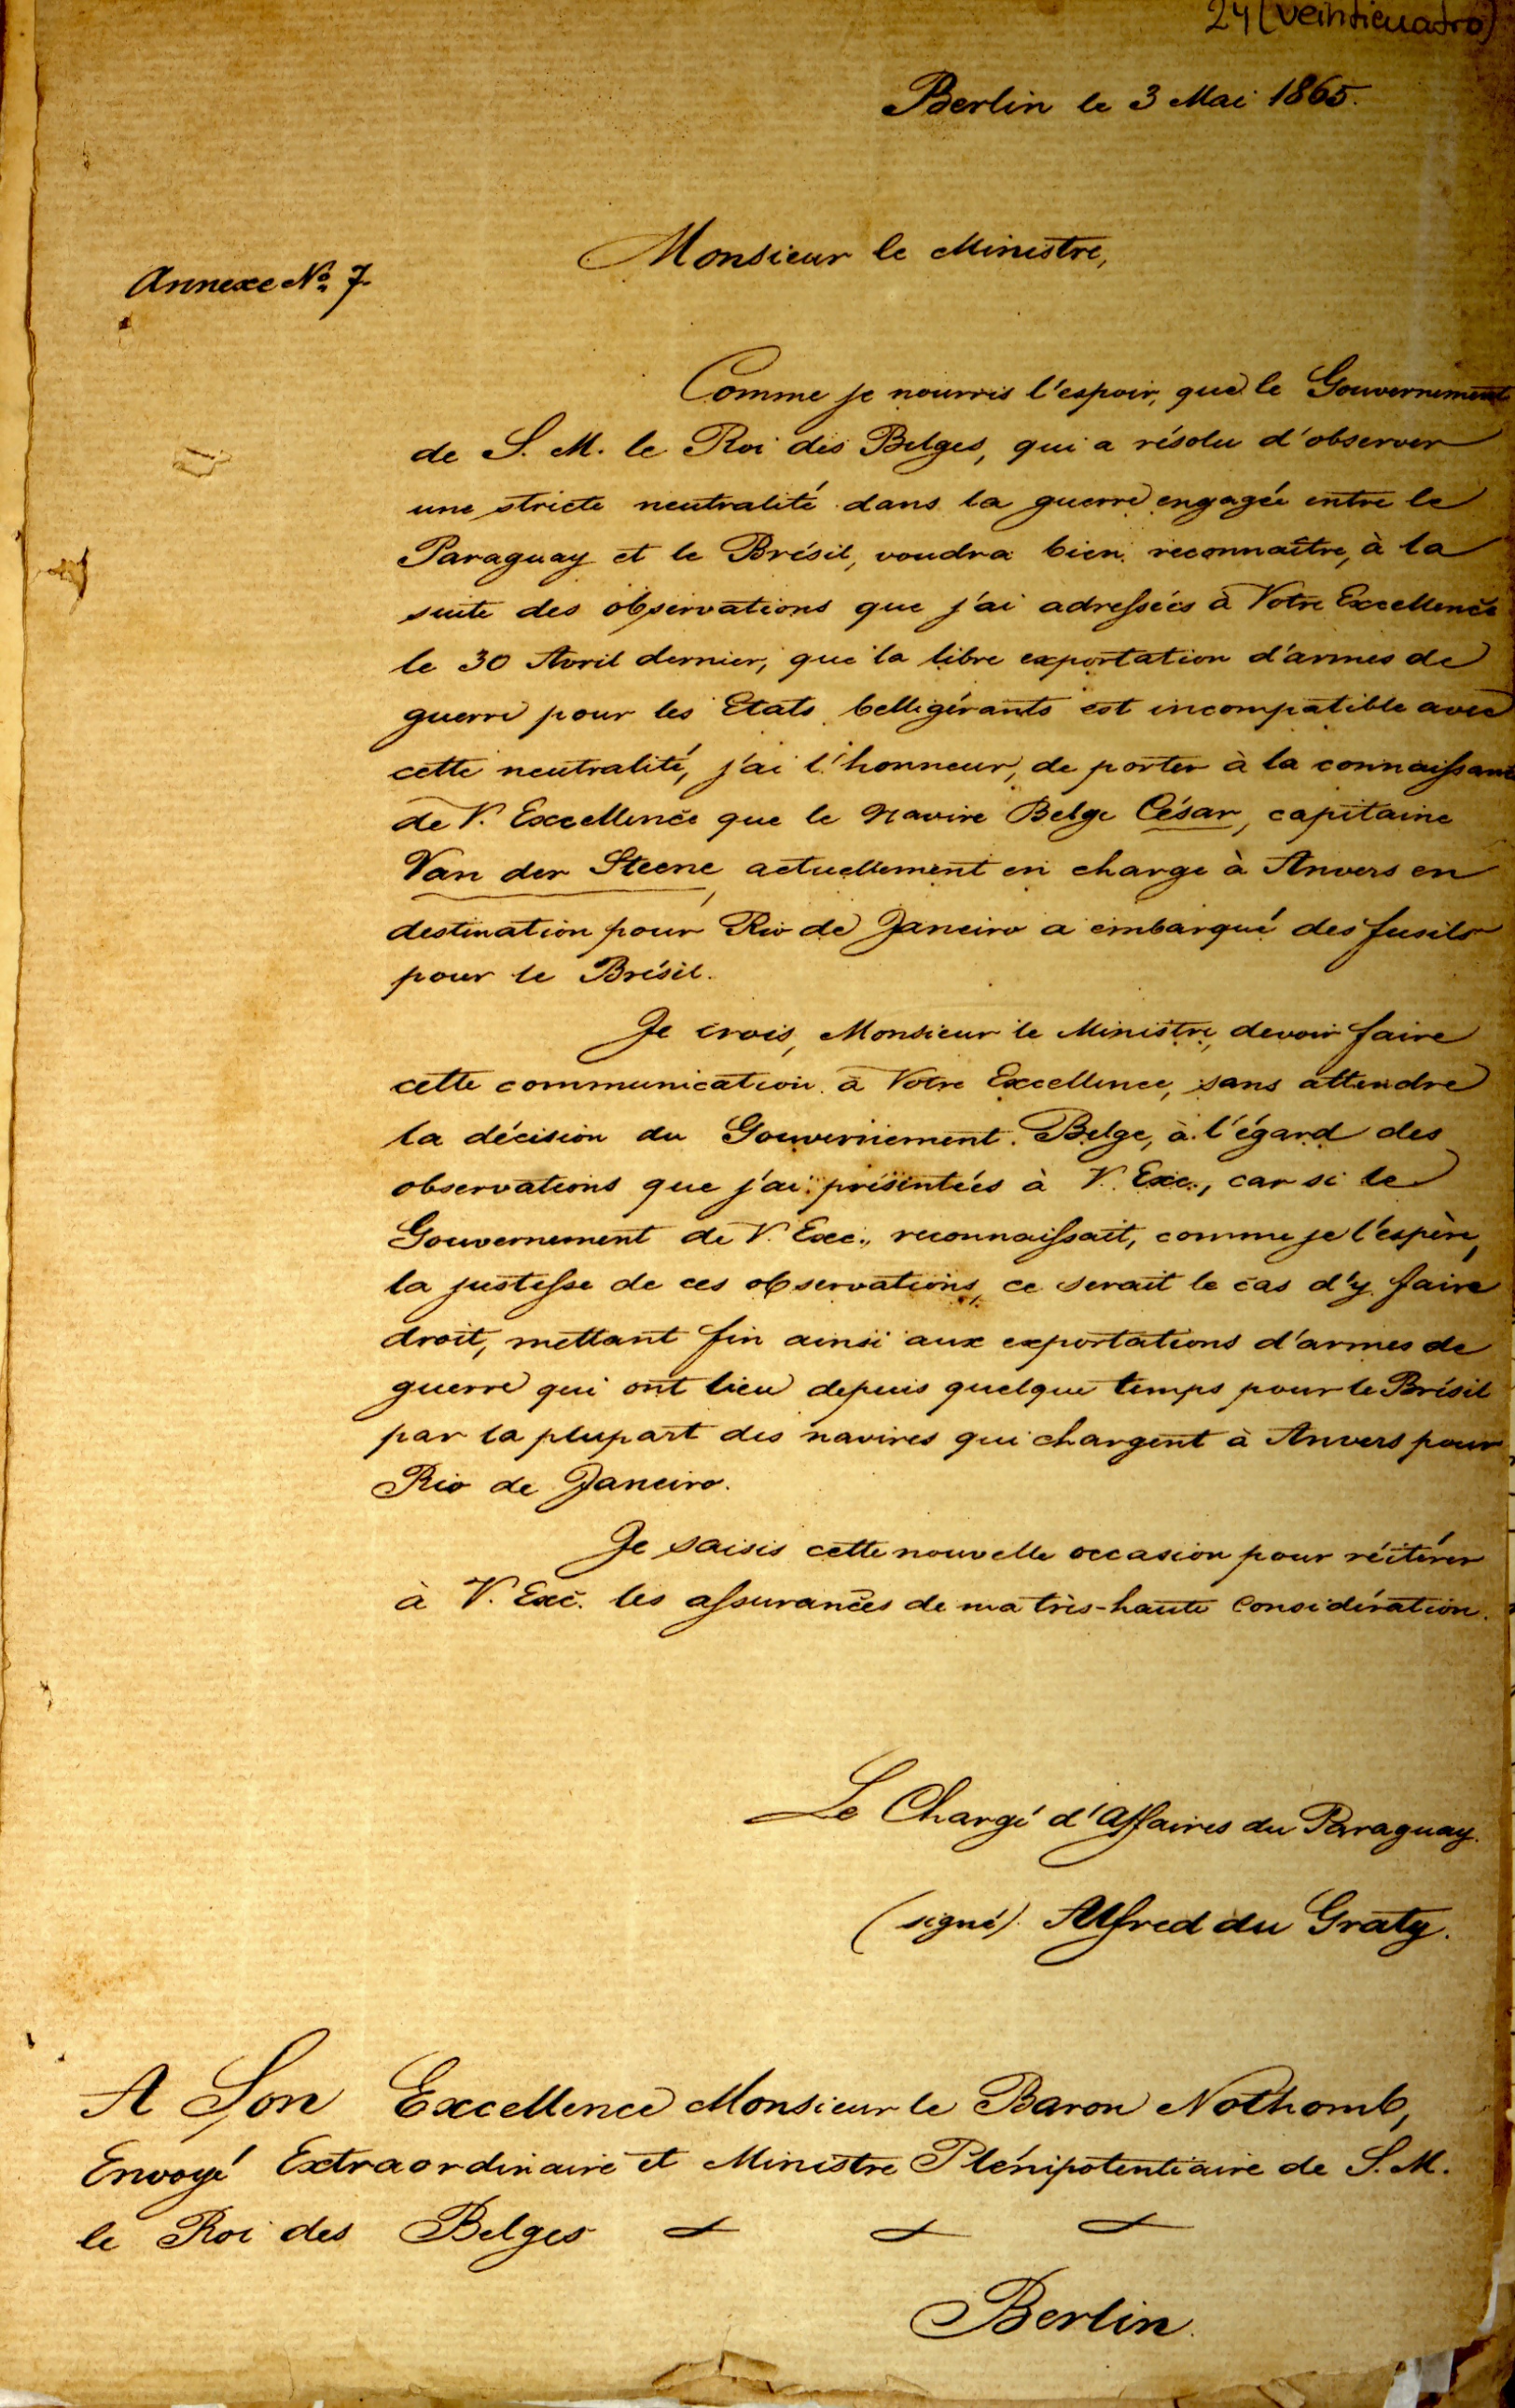 24 (veinticuatro)
Berlin le 3 Mai 1865.
Monsieur le Ministre,
Annexe No. 7.
Comme je nourris l'espoir, que le Gouvernement
de S. M. le Roi des Belges, qui a résolu d'observer
une stricte neutralité dans la guerre engagée entre le
Paraguay et le Brésil, voudra bien reconnaître, à la
suite des observations que j'ai adressées à Votre Excellence
le 30 Avril dernier, que la libre exportation d'armes de
guerre pour les Etats belligérants est incompatible avec
cette neutralité, j'ai l'honneur, de porter à la connaissance
de V. Excellence que le Navire Belge César, capitaine
Van der Steene, actuellement en charge à Anvers en
destination pour Rio de Janeiro a embarqué des fusils
pour le Brésil.
Je crois, Monsieur le Ministre, devoir faire
cette communication à Votre Excellence, sans attendre
la décision du Gouvernement Belge, à l'égard des
observations que j'ai présentées à V. Exc., car si le
Gouvernement de V. Exc., reconnaissait, comme je l'espère,
la justesse de ces observations, ce serait le cas d'y faire
droit, mettant fin ainsi aux exportations d'armes de
guerre qui ont lieu depuis quelque temps pour le Brésil
par la plupart des navires qui chargent à Anvers pour
Rio de Janeiro.
Je saisis cette nouvelle occasion pour réitérer
à V. Exc. les assurances de ma très-haute considération.
Le Chargé d'Affaires du Paraguay.
(signé) Alfred du Graty.
A Son Excellence Monsieur le Baron Nothomb,
Envoyé Extraordinaire et Ministre Plénipotentiaire de S. M.
le Roi des Belges
Berlin.